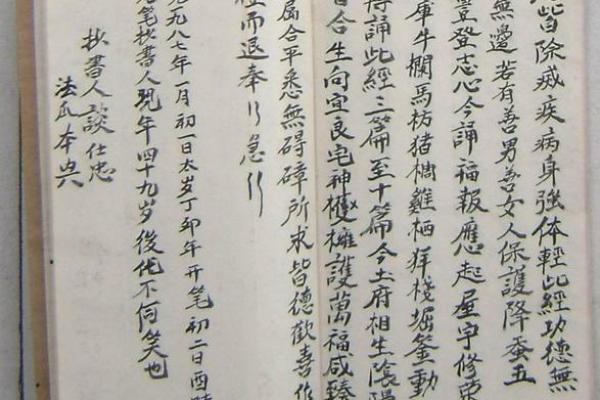 皆除滅疾病身強体輕此經功德無
無邊若有善男善女人保護降蚕五
豐登志心今誦福報應起屋宇修
庫牛欄馬枋猪椆雞栖羊棧堀動
誦此經三篇至十篇今土府相生陰陽
合生向宜良宅神擁護萬福咸臻
屬合平悉無碍障所求皆德歡喜作
而退奉行急行
九八七年一月初一日太岁丁卯年开笔初二日酉時
笔抄書人現年四十九岁後代不何笑也
抄書人談仕忠
法本